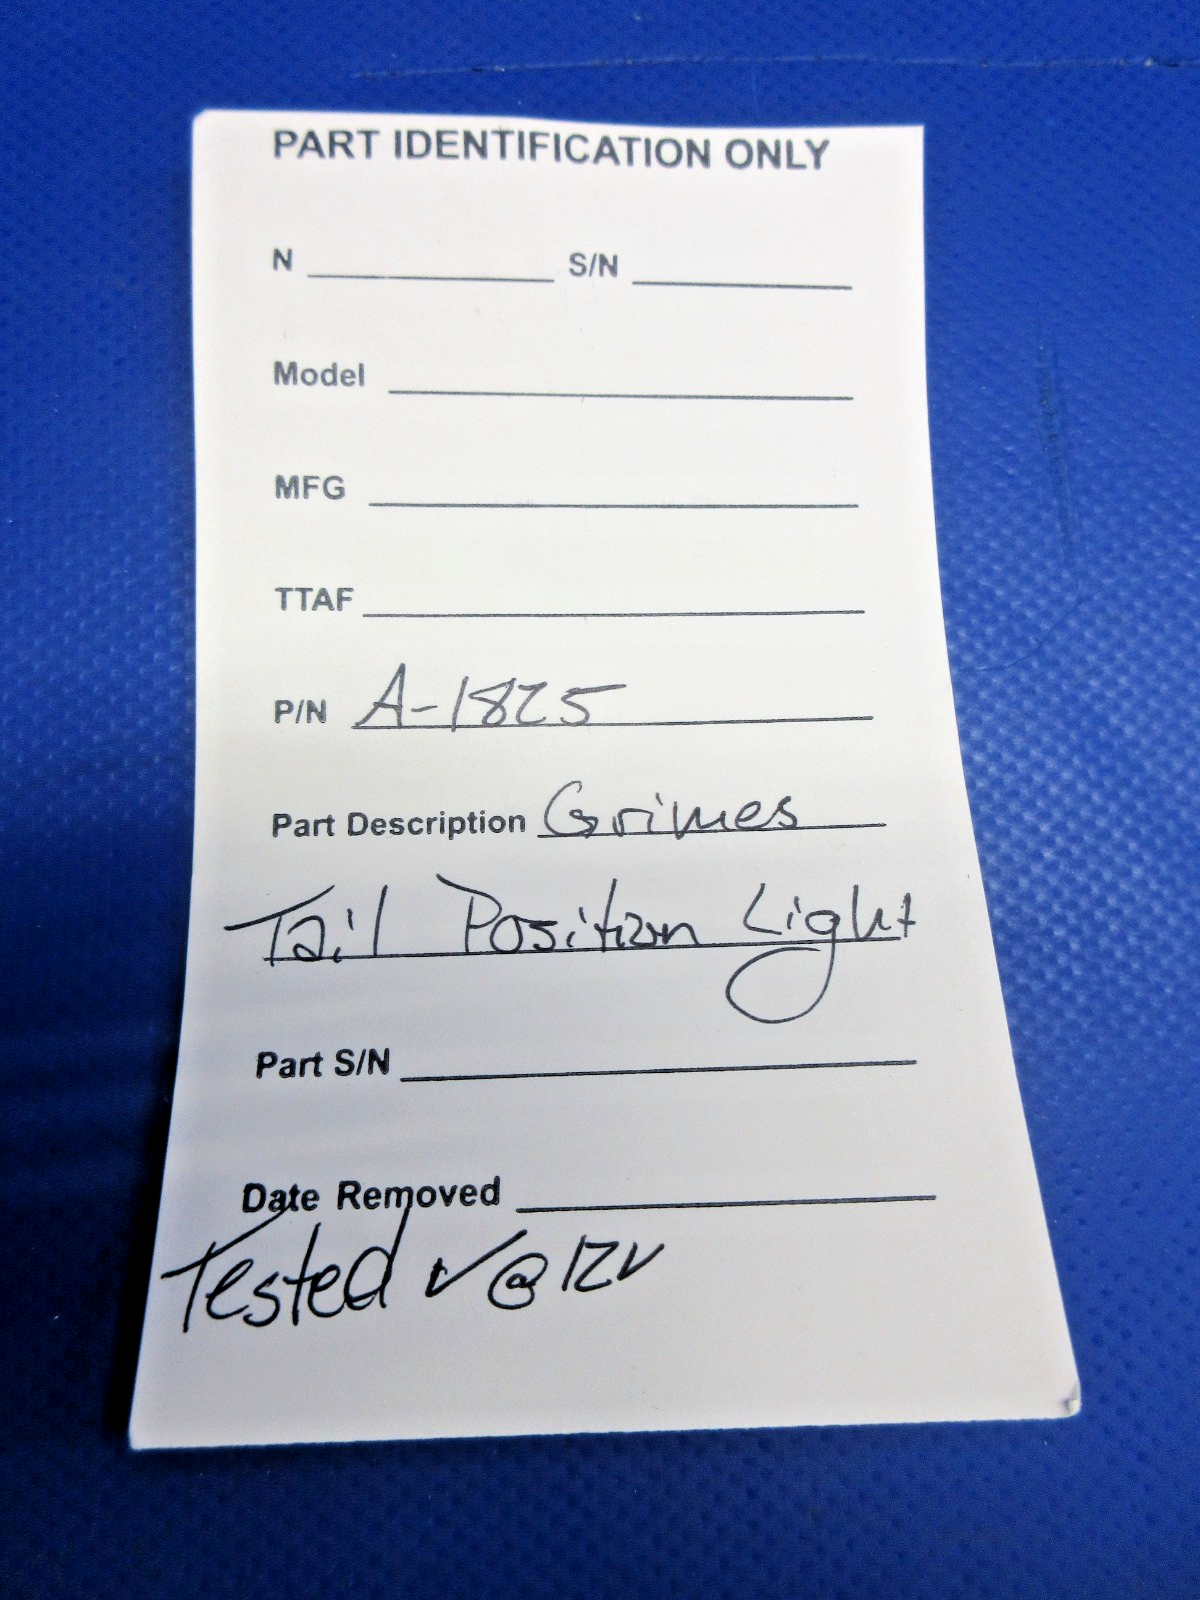 PART IDENTIFICATION ONLY
N S/N
Model
MFG
TTAF
P/N A-1825
Part Description Grimes
Tail Position Light
Part S/N
Date Removed
Tested ✓ @ 12V